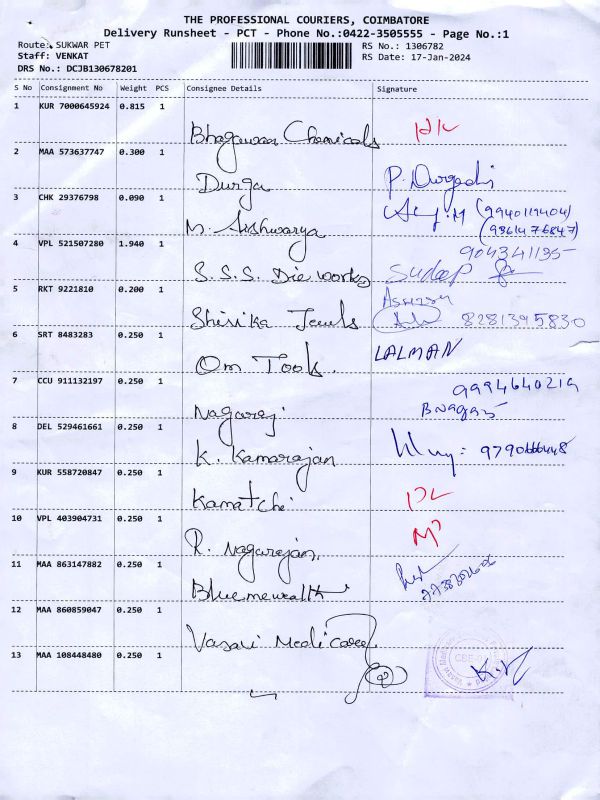 THE PROFESSIONAL COURIERS, COIMBATORE
Delivery Runsheet - PCT - Phone No.:0422-3505555 - Page No.:1
Route: SUKWAR PET RS No.: 1306782
Staff: VENKAT RS Date: 17-Jan-2024
DRS No.: DCJB130678201
S No Consignment No Weight PCS Consignee Details Signature
1 KUR 7000645924 0.815 1
Bhagawan Chemicals
2 MAA 573637747 0.300 1
Durga P. Durgadi
3 CHK 29376798 0.090 1
M. Aishwarya (9940119404)
(9361476847)
4 VPL 521507280 1.940 1 904341195
S.S.S. Die works Sudeep
5 RKT 9221810 0.200 1
Shirika Jewels 8281395830
6 SRT 8483283 0.250 1
Om Tools. LALMAN
7 CCU 911132197 0.250 1 9994640219
Nagaraj B Nagaraj
8 DEL 529461661 0.250 1
K. Kamarajan
9 KUR 558720847 0.250 1
Kamatchi
10 VPL 403904731 0.250 1
R. Nagarajan.
11 MAA 863147882 0.250 1
Bluemewealth
12 MAA 860859047 0.250 1
Vasari Medicare
13 MAA 108448480 0.250 1